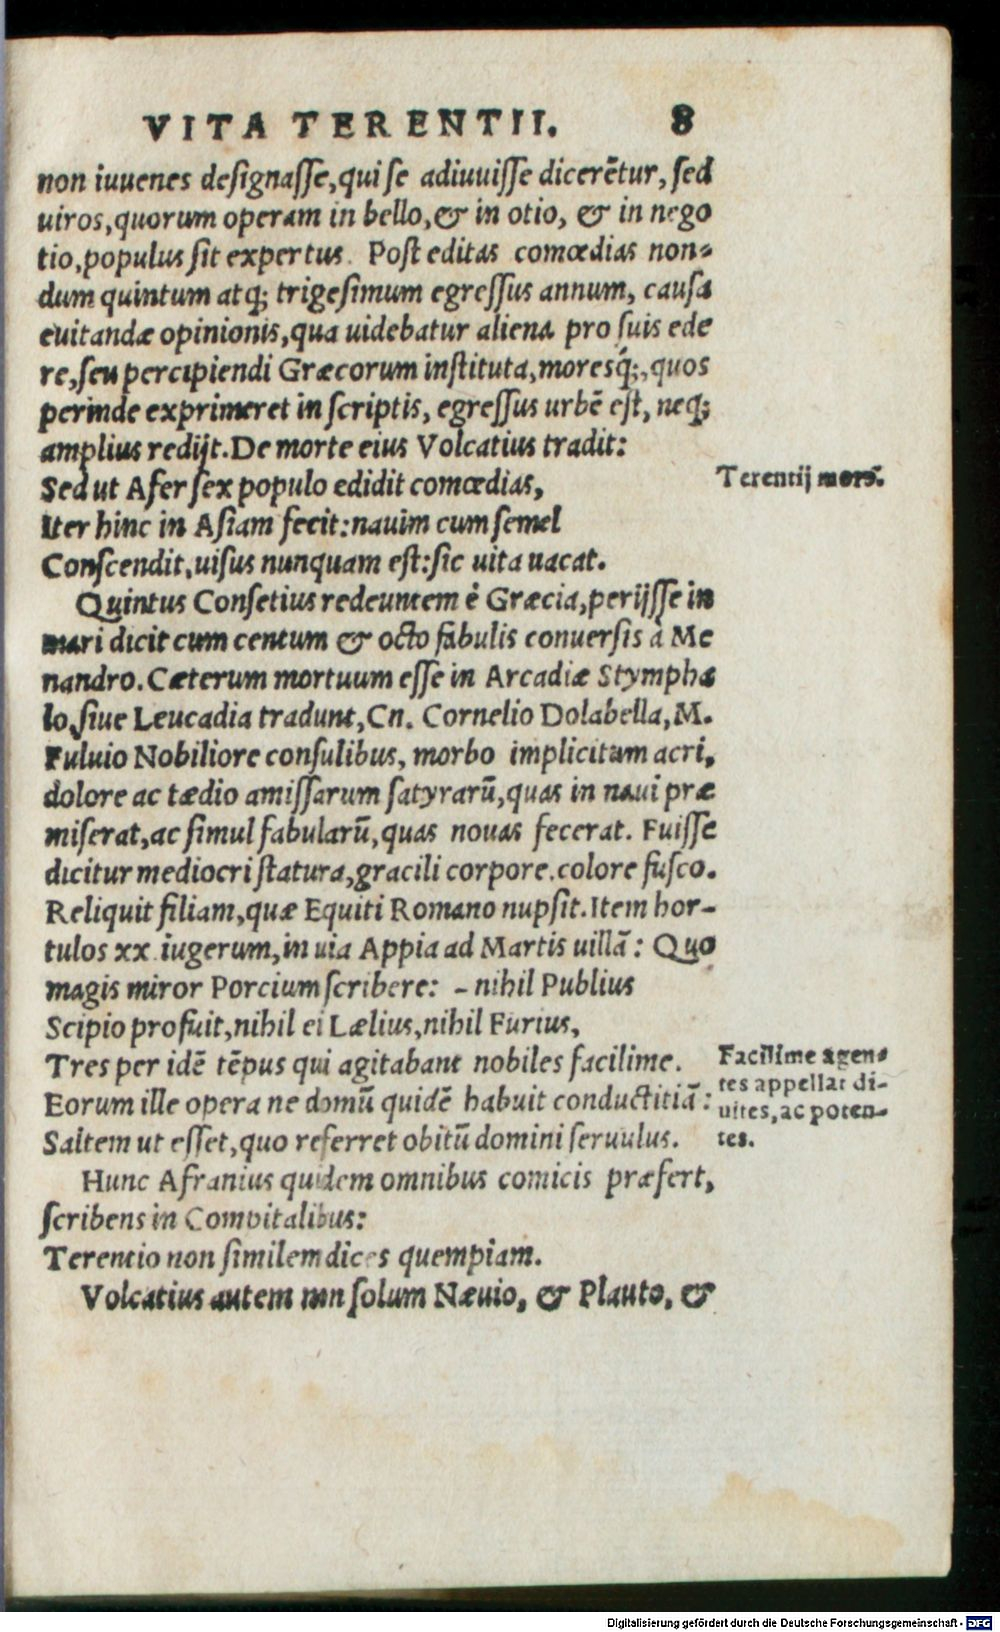 VITA TERENTII. 8
non iuuenes designasse, qui se adiuuisse dicerẽtur, sed
uiros, quorum operam in bello, & in otio, & in nego
tio, populus sit expertus. Post editas comœdias non-
dum quintum atq; trigesimum egressus annum, causa
euitandæ opinionis, qua uidebatur aliena pro suis ede
re, seu percipiendi Græcorum instituta, moresq́;, quos
perinde exprimeret in scriptis, egressus urbẽ est, neq;
amplius redijt. De morte eius Volcatius tradit:
Sed ut Afer sex populo edidit comœdias,
Terentij mors.
Iter hinc in Asiam fecit: nauim cum semel
Conscendit, uisus nunquam est: sic uita uacat.
Quintus Consetius redeuntem è Græcia, perijsse in
mari dicit cum centum & octo fabulis conuersis à Me
nandro. Cæterum mortuum esse in Arcadiæ Stympha
lo, siue Leucadia tradunt, Cn. Cornelio Dolabella, M.
Fuluio Nobiliore consulibus, morbo implicitum acri,
dolore ac tædio amissarum satyrarũ, quas in naui præ
miserat, ac simul fabularũ, quas nouas fecerat. Fuisse
dicitur mediocri statura, gracili corpore, colore fusco.
Reliquit filiam, quæ Equiti Romano nupsit. Item hor-
tulos xx. iugerum, in uia Appia ad Martis uillã: Quo
magis miror Porcium scribere: - nihil Publius
Scipio profuit, nihil ei Lælius, nihil Furius,
Tres per idẽ tẽpus qui agitabant nobiles facilime.
Eorum ille opera ne domũ quidẽ habuit conductitiã:
Saltem ut esset, quo referret obitũ domini seruulus.
Facillime agen-
tes appellat di-
uites, ac poten-
tes.
Hunc Afranius quidem omnibus comicis præfert,
scribens in Compitalibus:
Terentio non similem dices quempiam.
Volcatius autem non solum Næuio, & Plauto, &
Digitalisierung gefördert durch die Deutsche Forschungsgemeinschaft - DFG